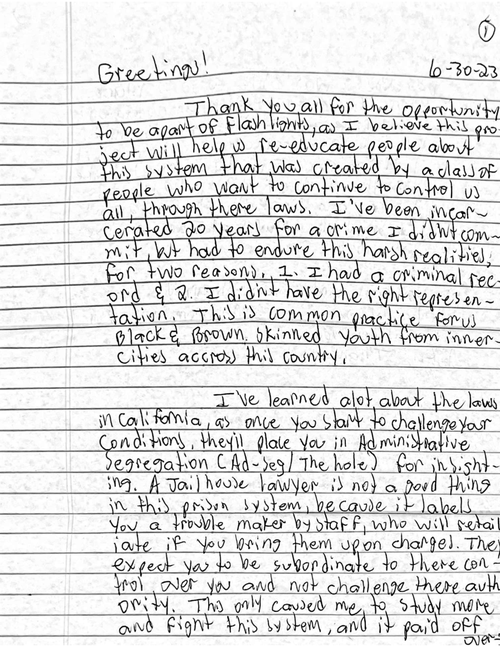 ①
Greetings!
6-30-23
Thank you all for the opportunity
to be apart of Flashlights, as I believe this pro
ject will help us re-educate people about
this system that was created by a class of
people who want to continue to control us
all, through there laws. I've been incar-
cerated 20 years for a crime I didnt com-
mit, but had to endure this harsh realities,
for two reasons, 1. I had a criminal rec-
ord & 2. I didint have the right represen-
tation. This is common practice for us
Black & Brown skinned youth from inner-
cities accross this country.
I've learned alot about the laws
in California, as once you start to challenge your
conditions, they'll place you in Administrative
Segregation (Ad-Seg/The hole) for insight-
ing. A Jailhouse Lawyer is not a good thing
in this prison system, because it labels
you a trouble maker by staff, who will retail
iate if you bring them upon charges. They
expect you to be subordinate to there con-
trol, over you and not challenge there auth
ority. This only caused me, to study more
and fight this system, and it paid off
over→